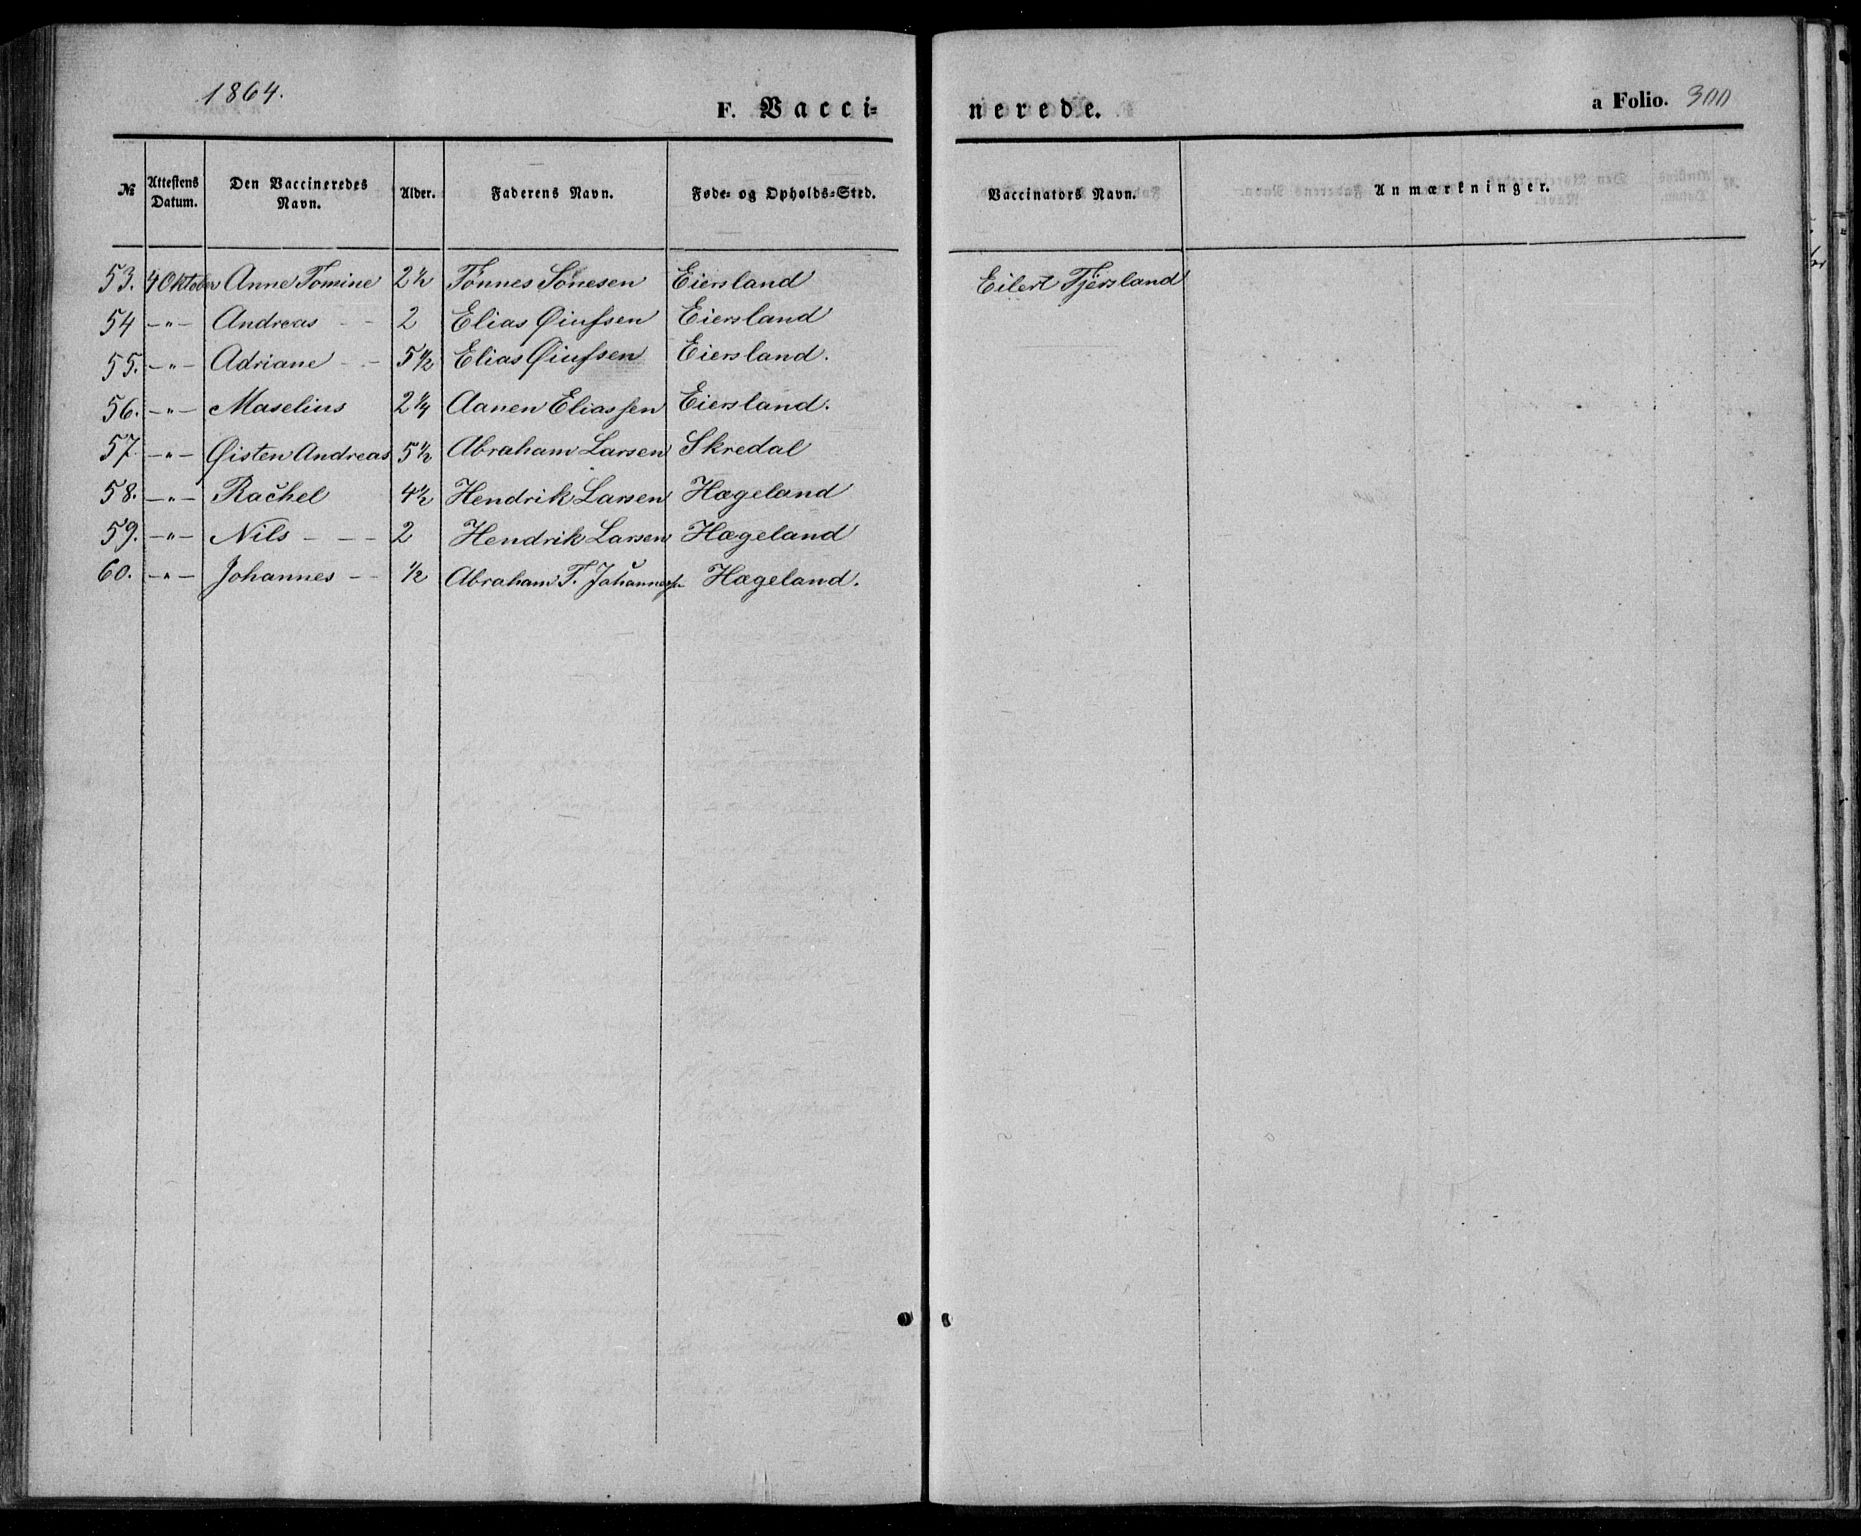 1864.
F. Vacci-
nerede.
a Folio. 300
№ Attestens Datum. Den Vaccineredes Navn. Alder. Faderens Navn. Føde- og Opholds-Sted. Vaccinators Navn. Anmærkninger.
53. 4 Oktober Anne Tomine 2½ Tønnes Sønesen Eiersland Eilert Tjersland
54 -"- Andreas - - 2 Elias Øiufsen Eiersland
55. -"- Adriane - - 5½ Elias Øiufsen Eiersland.
56. -"- Maselius 2¼ Aanen Eliassen Eiersland.
57. -"- Øisten Andreas 5½ Abraham Larsen Skredal
58. -"- Rachel 4½ Hendrik Larsen Hægeland
59. -"- Nils - - - 2 Hendrik Larsen Hægeland
60. -"- Johannes - - ½ Abraham T. Johannessen Hægeland.